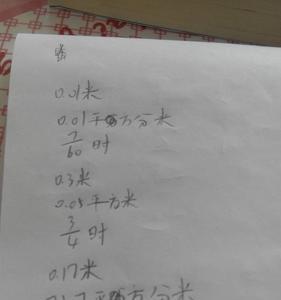 0.01米
0.01平方分米
7/60时
0.3米
0.05平方米
3/4时
0.17米
平方分米